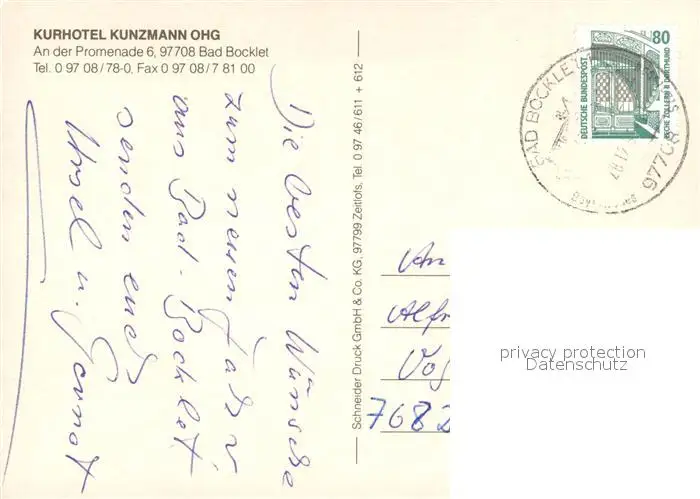 KURHOTEL KUNZMANN OHG
An der Promenade 6, 97708 Bad Bocklet
Tel. 0 97 08/78-0, Fax 0 97 08/7 81 00
Die besten Wünsche
zum neuen Jahr
aus Bad-Bocklet
senden euch
Ursel u. Gernot
Schneider Druck GmbH & Co. KG, 97799 Zeitlofs, Tel. 0 97 46/611 + 612
80
DEUTSCHE BUNDESPOST
ZECHE ZOLLERN II DORTMUND
BAD BOCKLET
97708
An
Alfr
Vog
7682
privacy protection
Datenschutz